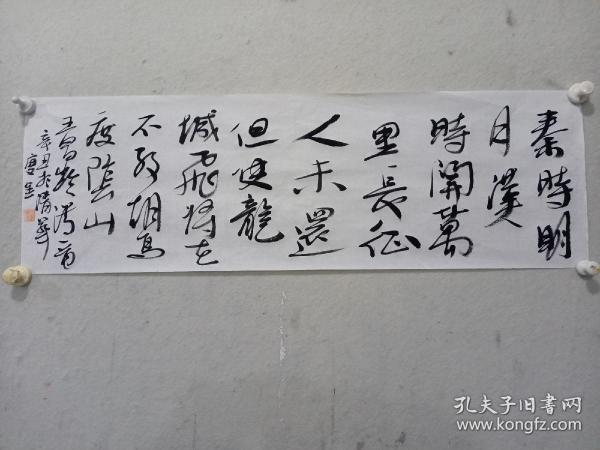 秦時明
月漢
時開萬
里長征
人未還
但使龍
城飛将在
不教胡馬
度陰山
王昌龄詩一首
辛丑于清華
唐昱
孔夫子旧书网
www.kongfz.com